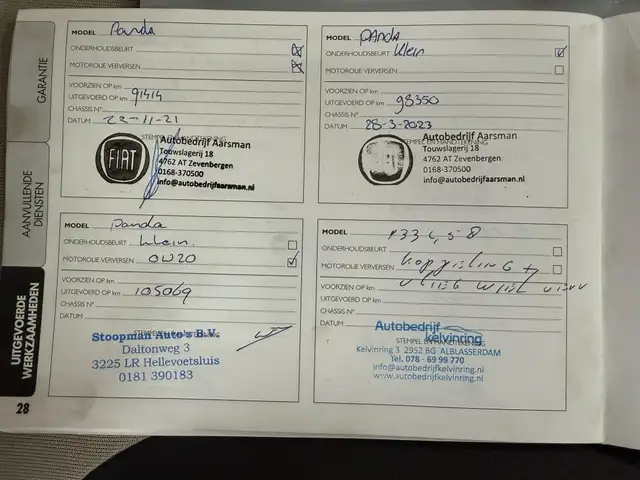 GARANTIE
AANVULLENDE
DIENSTEN
UITGEVOERDE
WERKZAAMHEDEN
28
MODEL Panda
ONDERHOUDSBEURT
MOTOROLIE VERVERSEN
VOORZIEN OP km
UITGEVOERD OP km 91414
CHASSIS N°
DATUM 22-11-21
STEMPEL EN HANDTEKENING
FIAT
Autobedrijf Aarsman
Touwslagerij 18
4762 AT Zevenbergen
0168-370500
info@autobedrijfaarsman.nl
MODEL PANDA
ONDERHOUDSBEURT Klein
MOTOROLIE VERVERSEN
VOORZIEN OP km
UITGEVOERD OP km 98350
CHASSIS N°
DATUM 28-3-2023
STEMPEL EN HANDTEKENING
Autobedrijf Aarsman
Touwslagerij 18
4762 AT Zevenbergen
0168-370500
info@autobedrijfaarsman.nl
MODEL Panda
ONDERHOUDSBEURT klein.
MOTOROLIE VERVERSEN 0W20
VOORZIEN OP km
UITGEVOERD OP km 105069
CHASSIS N°
DATUM
Stoopman Auto's B.V.
Daltonweg 3
3225 LR Hellevoetsluis
0181 390183
MODEL
ONDERHOUDSBEURT
MOTOROLIE VERVERSEN
VOORZIEN OP km
UITGEVOERD OP km
CHASSIS N°
DATUM
Autobedrijf
kelvinring
STEMPEL EN HANDTEKENING
Kelvinring 3 2952 BG ALBLASSERDAM
Tel. 078 - 69 99 770
info@autobedrijfkelvinring.nl
www.autobedrijfkelvinring.nl